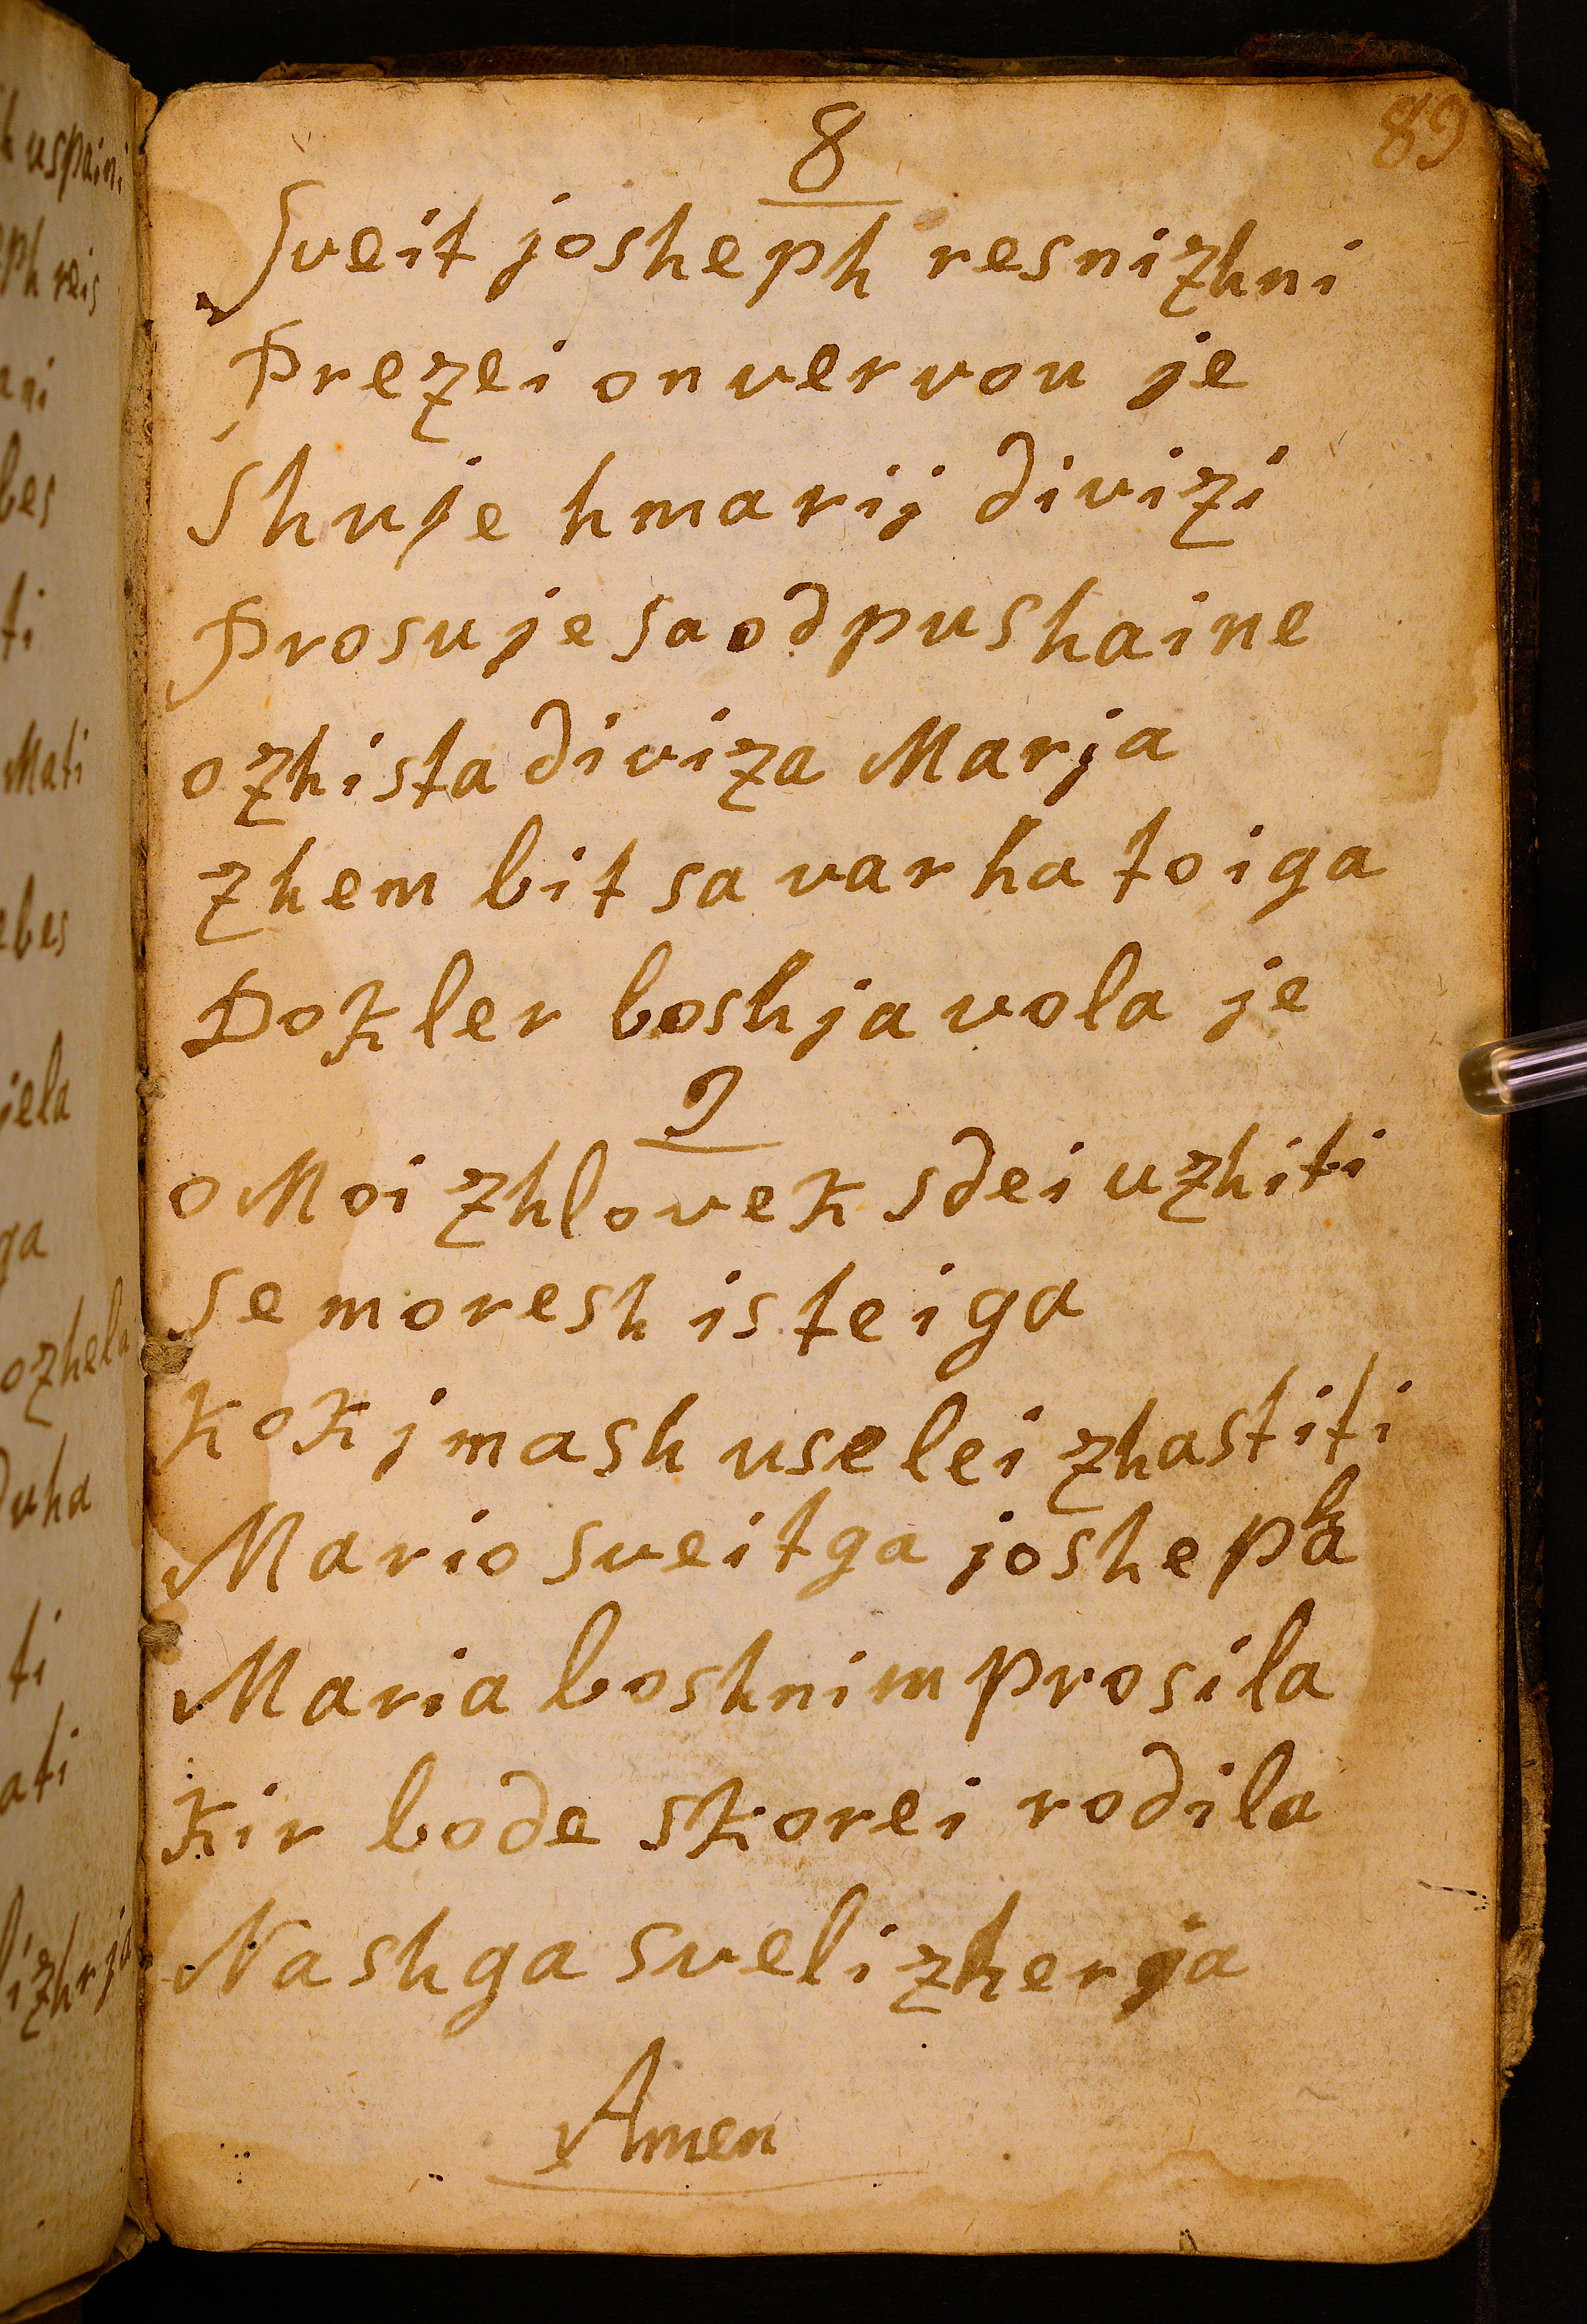 89
8
Sveit josheph resnizhni
Prezei on vervou je
Shuje hmarij divizi
Prosuje sa odpushaine
o zhista diviza Marja
zhem bit sa varha toiga
Dokler boshja vola je
9
o Moi zhlovek sdei uzhiti
se moresh is teiga
Kok jmash uselei zhastiti
Mario sveitga joshepha
Maria bosh nim prosila
Kir bode skorei rodila
Nashga svelizherja
Amen
uspaini
ph reis
ani
bes
ti
Mati
ebes
jela
ga
ozhela
Duha
ti
ati
lizhrja